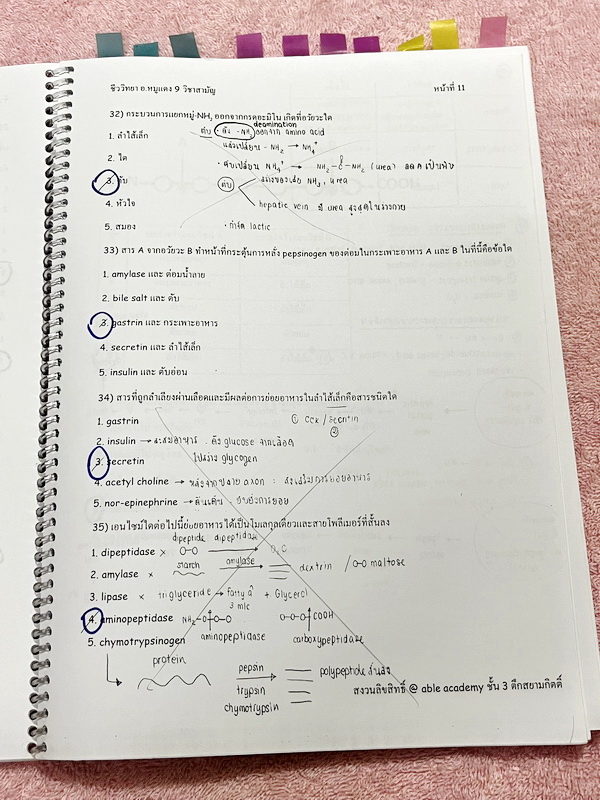 ชีววิทยา อ.หมูแดง 9 วิชาสามัญ หน้าที่ 11
32) กระบวนการแยกหมู่-NH₂ ออกจากกรดอะมิโน เกิดที่อวัยวะใด
deamination
1. ลำไส้เล็ก ตับ · ดึง -NH₂ ออกจาก amino acid
แล้วเปลี่ยน - NH₂ → NH₄⁺
2. ไต
· ตับเปลี่ยน NH₄⁺ → NH₂ - C - NH₂ (urea) ลดความเป็นพิษ
O
3. ตับ ตับ สร้างของเสีย NH₃, urea
4. หัวใจ hepatic vein มี urea สูงสุดในร่างกาย
5. สมอง · กำจัด lactic
33) สาร A จากอวัยวะ B ทำหน้าที่กระตุ้นการหลั่ง pepsinogen ของต่อมในกระเพาะอาหาร A และ B ในที่นี้คือข้อใด
1. amylase และ ต่อมน้ำลาย
2. bile salt และ ตับ
3. gastrin และ กระเพาะอาหาร
4. secretin และ ลำไส้เล็ก
5. insulin และ ตับอ่อน
34) สารที่ถูกลำเลียงผ่านเลือดและมีผลต่อการย่อยอาหารในลำไส้เล็กคือสารชนิดใด
1. gastrin ① CCK / secretin
②
2. insulin → สะสมอาหาร . ดึง glucose จากเลือด
3. secretin ไปสร้าง glycogen
4. acetyl choline → หลั่งจากปลาย axon :
5. nor-epinephrine → ตื่นเต้น . ยับยั้งการย่อย
35) เอนไซม์ใดต่อไปนี้ย่อยอาหารได้เป็นโมเลกุลเดี่ยวและสายโพลีเมอร์ที่สั้นลง
dipeptide dipeptidase
1. dipeptidase ×
starch amylase
2. amylase × dextrin / maltose
3. lipase × triglyceride → fatty a + Glycerol
3 mlc
4. aminopeptidase NH₂ COOH
5. chymotrypsinogen aminopeptidase carboxypeptidase
protein
pepsin polypeptide สั้นลง
trypsin
chymotrypsin
สงวนลิขสิทธิ์ @ able academy ชั้น 3 ตึกสยามกิตติ์